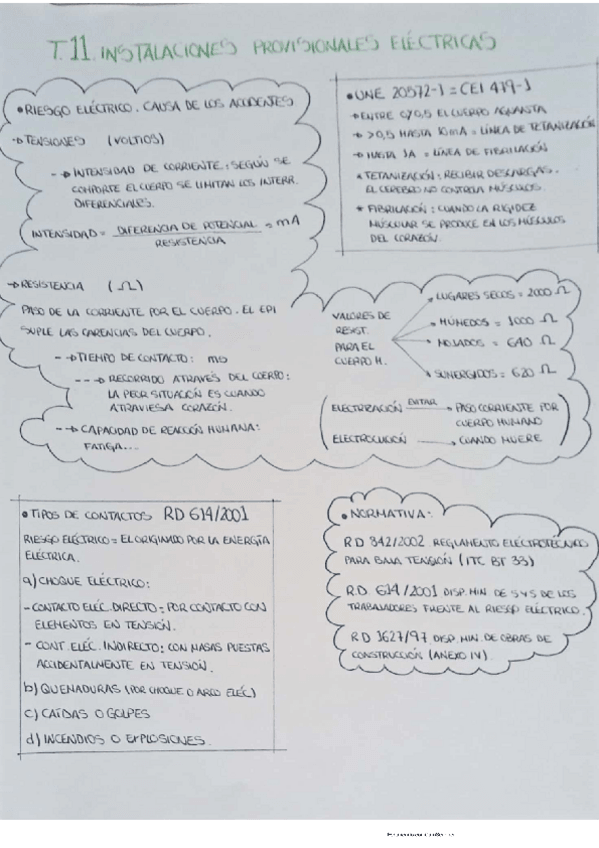 T.11. INSTALACIONES PROVISIONALES ELÉCTRICAS
• RIESGO ELÉCTRICO. CAUSA DE LOS ACCIDENTES
→ TENSIONES (VOLTIOS)
--→ INTENSIDAD DE CORRIENTE: SEGÚN SE
COMPORTE EL CUERPO SE LIMITAN LOS INTERR.
DIFERENCIALES.
INTENSIDAD = DIFERENCIA DE POTENCIAL = mA
RESISTENCIA
→ RESISTENCIA (Ω)
PASO DE LA CORRIENTE POR EL CUERPO. EL EPI
SUPLE LAS CARENCIAS DEL CUERPO.
--→ TIEMPO DE CONTACTO: ms
---→ RECORRIDO ATRAVÉS DEL CUERPO:
LA PEOR SITUACIÓN ES CUANDO
ATRAVIESA CORAZÓN.
--→ CAPACIDAD DE REACCIÓN HUMANA:
FATIGA...
• UNE 20572-1 = CEI 479-1
→ ENTRE 0/0,5 EL CUERPO AGUANTA
→ >0,5 HASTA 10mA = LÍNEA DE TETANIZACIÓN
→ HASTA 1A = LÍNEA DE FIBRILACIÓN
* TETANIZACIÓN: RECIBIR DESCARGAS.
EL CEREBRO NO CONTROLA MÚSCULOS.
* FIBRILACIÓN: CUANDO LA RIGIDEZ
MUSCULAR SE PRODUCE EN LOS MÚSCULOS
DEL CORAZÓN.
VALORES DE
RESIST.
PARA EL
CUERPO H.
LUGARES SECOS = 2000 Ω
HÚMEDOS = 1000 Ω
MOJADOS = 640 Ω
SUMERGIDOS = 620 Ω
ELECTRIZACIÓN EVITAR → PASO CORRIENTE POR
CUERPO HUMANO
ELECTROCUCIÓN → CUANDO MUERE
• TIPOS DE CONTACTOS RD 614/2001
RIESGO ELÉCTRICO = EL ORIGINADO POR LA ENERGÍA
ELÉCTRICA.
a) CHOQUE ELÉCTRICO:
- CONTACTO ELÉC. DIRECTO: POR CONTACTO CON
ELEMENTOS EN TENSIÓN.
- CONT. ELÉC. INDIRECTO: CON MASAS PUESTAS
ACCIDENTALMENTE EN TENSIÓN.
b) QUEMADURAS (POR CHOQUE O ARCO ELÉC)
c) CAÍDAS O GOLPES
d) INCENDIOS O EXPLOSIONES.
• NORMATIVA:
RD 842/2002 REGLAMENTO ELECTROTÉCNICO
PARA BAJA TENSIÓN (ITC BT 33)
RD 614/2001 DISP. MIN. DE S Y S DE LOS
TRABAJADORES FRENTE AL RIESGO ELÉCTRICO.
RD 1627/97 DISP. MIN. DE OBRAS DE
CONSTRUCCIÓN (ANEXO IV)